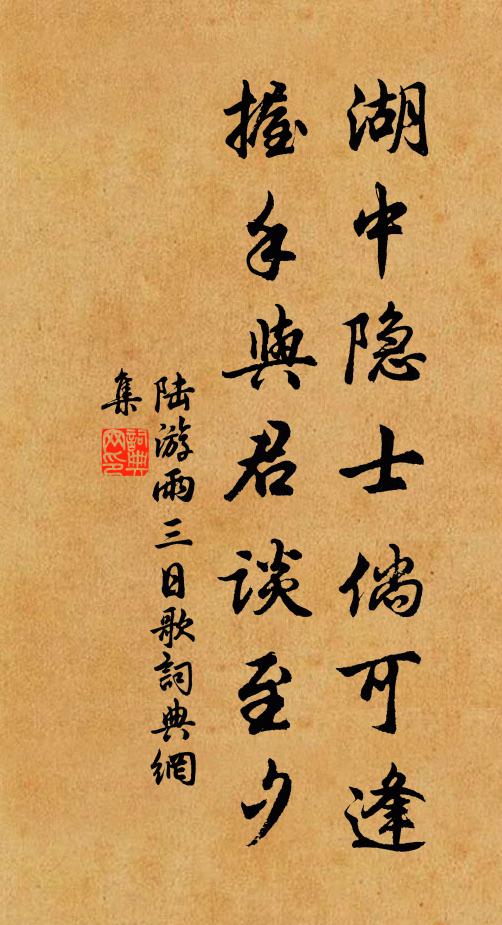 湖中隐士倘可逢
握手與君谈至夕
陆游雨三日歌詞典網
集
詞典网印